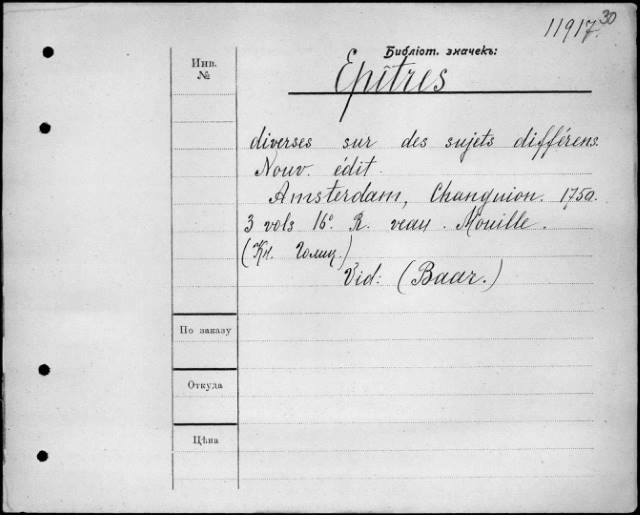 11917.30
Библіот. значекъ:
Инв.
№
Epîtres
diverses sur des sujets différens.
Nouv. édit.
Amsterdam, Changuion. 1750.
3 vols 16°. R. veau. Mouillé.
(Кн. Голиц.)
Vid: (Baar.)
По заказу
Откуда
Цѣна